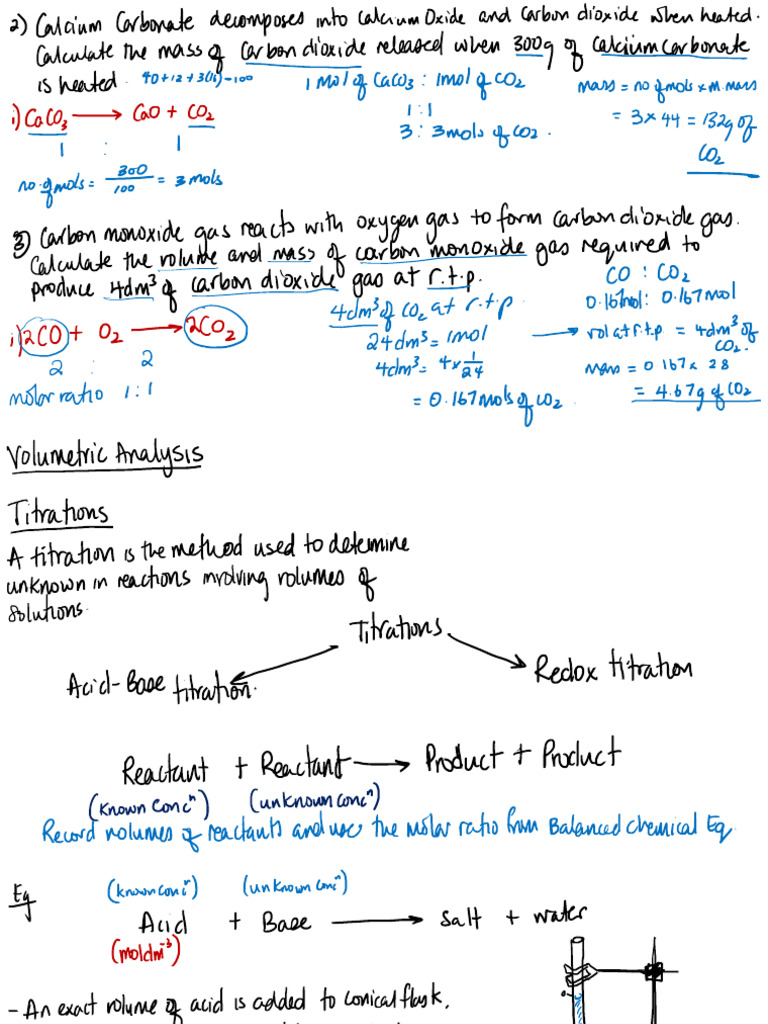 2) Calcium Carbonate decomposes into Calcium Oxide and Carbon dioxide when heated.
Calculate the mass of Carbon dioxide released when 300g of Calcium Carbonate
is heated. 40+12+3(16)=100
i) CaCO₃ → CaO + CO₂
1 : 1
no. of mols = 300/100 = 3 mols
1 Mol of CaCO₃ : 1mol of CO₂
1:1
3 : 3mols of CO₂.
mass = no of mols × m.mass
= 3 × 44 = 132g of
CO₂
3) Carbon monoxide gas reacts with oxygen gas to form carbon dioxide gas.
Calculate the volume and mass of carbon monoxide gas required to
produce 4dm³ of carbon dioxide gas at r.t.p.
i) 2CO + O₂ → 2CO₂
2 : 2
molar ratio 1:1
4dm³ of CO₂ at r.t.p
24dm³ = 1mol
4dm³ = 4 × 1/24
= 0.167mols of CO₂
CO : CO₂
0.167mol : 0.167mol
→ vol at r.t.p = 4dm³ of
CO₂.
Mass = 0.167 × 28
= 4.67g of CO₂
Volumetric Analysis
Titrations
A titration is the method used to determine
unknown in reactions involving volumes of
solutions.
Titrations
Acid-Base titration.
Redox titration
Reactant + Reactant → Product + Product
(known concⁿ) (unknown concⁿ)
Record volumes of reactants and use the molar ratio from Balanced Chemical Eq
Eg
(known concⁿ) (unknown concⁿ)
Acid + Base → Salt + water
(moldm⁻³)
- An exact volume of acid is added to conical flask,